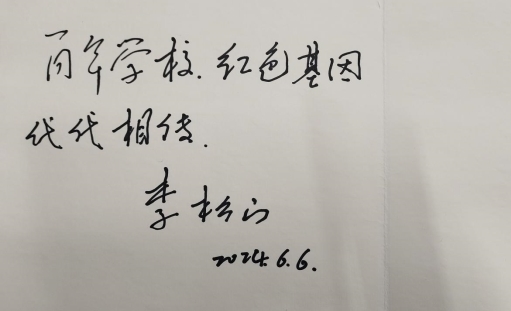 百年学校.红色基因
代代相传.
李松山
2024.6.6.